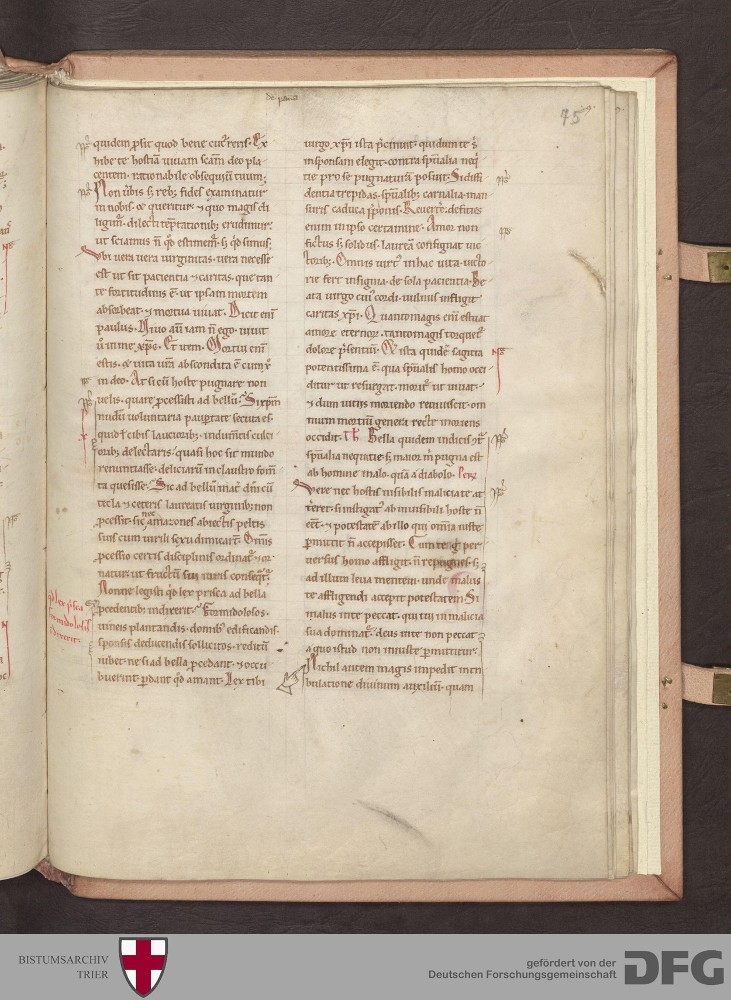 75
quidem p̄sit quod bene cucurreris. Ex
hibe te hostiā uiuam scām deo pla
centem. rationabile obsequiū tuum;
Non uerbis s; reb; fides examinatur
in nobis. & queritur. & quo magis di
ligim̄. dilecti teptationib; erudimur.
ut sciamus n̄ qđ estimem̄. s; qđ simus;
Vbi uera uera uirginitas. uera necesse
est ut sit pacientia & caritas. que tan
te fortitudinis ē. ut ipsam mortem
absorbeat. & mortua uiuat. Dicit enī
paulus. Viuo aū iam n̄ ego. uiuit
ū in me xp̄c. Et item. Mortui enī
estis. & uita ura abscondita ē cum xp̄o
in deo. At si cū hoste pugnare non
uelis. quare pcessisti ad bellū. Si xpm̄
nudū uoluntaria paupertate secuta es.
delectaris. quasi hoc sit mundo
renuntiasse. deliciarū in claustro formā
quesisse. Sic ad bellū
tecla & ceteris laureatis uirginib; non
pcessit. sic nec amazones abiectis peltis
suis cum uirili sexu dimicarē. Om̄is
pcessio certis disciplinis ordinat̄ & or
natur. ut fructū sui iuris conseq̄t̄.
Nonne legisti qđ lex prisca ad bella
pcedentib; indixerit. Formidolosos.
uineis plantandis. domib; edificandis.
sponsis deducendis sollicitos. reditū
iubet. ne si ad bella pcedant & occu
buerint. pdant qđ amant. Lex tibi
qđ lex p̄sca
formidolosis
dixerit
uirgo. xp̄i ista p̄cinuit. quidum te s
in sponsam elegit. contra sp̄ualia neq
tie p se pugnaturā posuit. Si diffi
dentia trepidas. sp̄ualib; carnalia. man
suris caduca p̄ponis. Reuerte. deficies
enim in ipso certamine. Amor non
fictus s; solidus. laureā consignat uic
torib;. Om̄nis uirt in hac uita. uicto
rie fert insignia. de sola pacientia. Be
ata uirgo cui cordi uulnus infligit
caritas xp̄i. Quanto magis enī estuat
amore eterno. tanto magis torquet
dolore p̄sentiū. Et ista quidē sagitta
potentissima ē. qua sp̄ualis homo occi
ditur ut resurgat. morit̄ ut uiuat.
& dum uitiis moriendo reuiuiscit. om
nium mortiū genera recte moriens
occidit. Th. Bella quidem indicis
sp̄ualia nequitie. s; maior m̄ pugna est
ab homine malo. quā a diabolo. Pere
Vere nec hostis inuisibilis malicia te at
tereret. si instigat ab inuisibili hoste n̄
eēt. & potestatē ab illo qui om̄ia iuste
pmittit n̄ accepisset. Cum te g per
uersus homo affligit. n̄ repugnes. s;
ad illum leua mentem. unde malus
te affligendi accepit potestatem. Si
malus inte peccat. qui tui in malicia
sua dominat. deus inte non peccat
a quo istud non iniuste pmittitur.
Nichil autem magis impedit in tri
bulatione diuinum auxiliū. quam
BISTUMSARCHIV
TRIER
gefördert von der
Deutschen Forschungsgemeinschaft
DFG